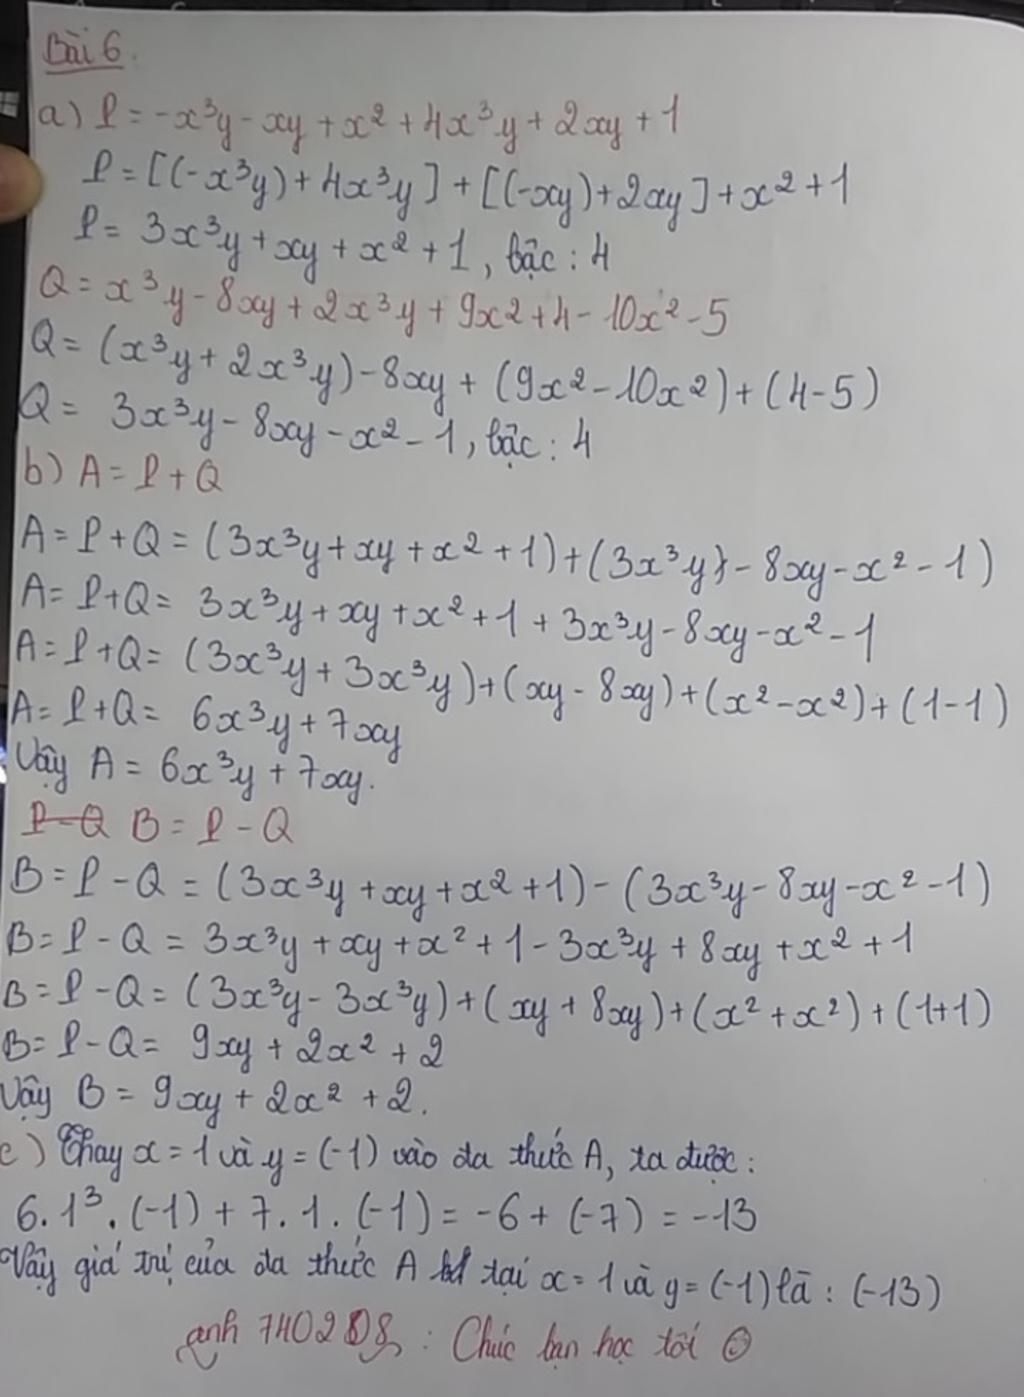 Bài 6.
a) P = -x³y - xy + x² + 4x³y + 2xy + 1
P = [(-x³y) + 4x³y] + [(-xy) + 2xy] + x² + 1
P = 3x³y + xy + x² + 1, bậc : 4
Q = x³y - 8xy + 2x³y + 9x2 + 4 - 10x² - 5
Q = (x³y + 2x³y) - 8xy + (9x² - 10x²) + (4 - 5)
Q = 3x³y - 8xy - x² - 1, bậc : 4
b) A = P + Q
A = P + Q = (3x³y + xy + x² + 1) + (3x³y) - 8xy - x² - 1)
A = P + Q = 3x³y + xy + x² + 1 + 3x³y - 8xy - x² - 1
A = P + Q = (3x³y + 3x³y) + (xy - 8xy) + (x² - x²) + (1 - 1)
A = P + Q = 6x³y + 7xy
Vậy A = 6x³y + 7xy.
P - Q B = P - Q
B = P - Q = (3x³y + xy + x² + 1) - (3x³y - 8xy - x² - 1)
B = P - Q = 3x³y + xy + x² + 1 - 3x³y + 8xy + x² + 1
B = P - Q = (3x³y - 3x³y) + (xy + 8xy) + (x² + x²) + (1 + 1)
B = P - Q = 9xy + 2x² + 2
Vậy B = 9xy + 2x² + 2.
c) Thay x = 1 và y = (-1) vào đa thức A, ta được :
6. 1³. (-1) + 7. 1. (-1) = -6 + (-7) = -13
Vậy giá trị của đa thức A tại x = 1 và y = (-1) là : (-13)
anh : Chúc bạn học tốt ☺